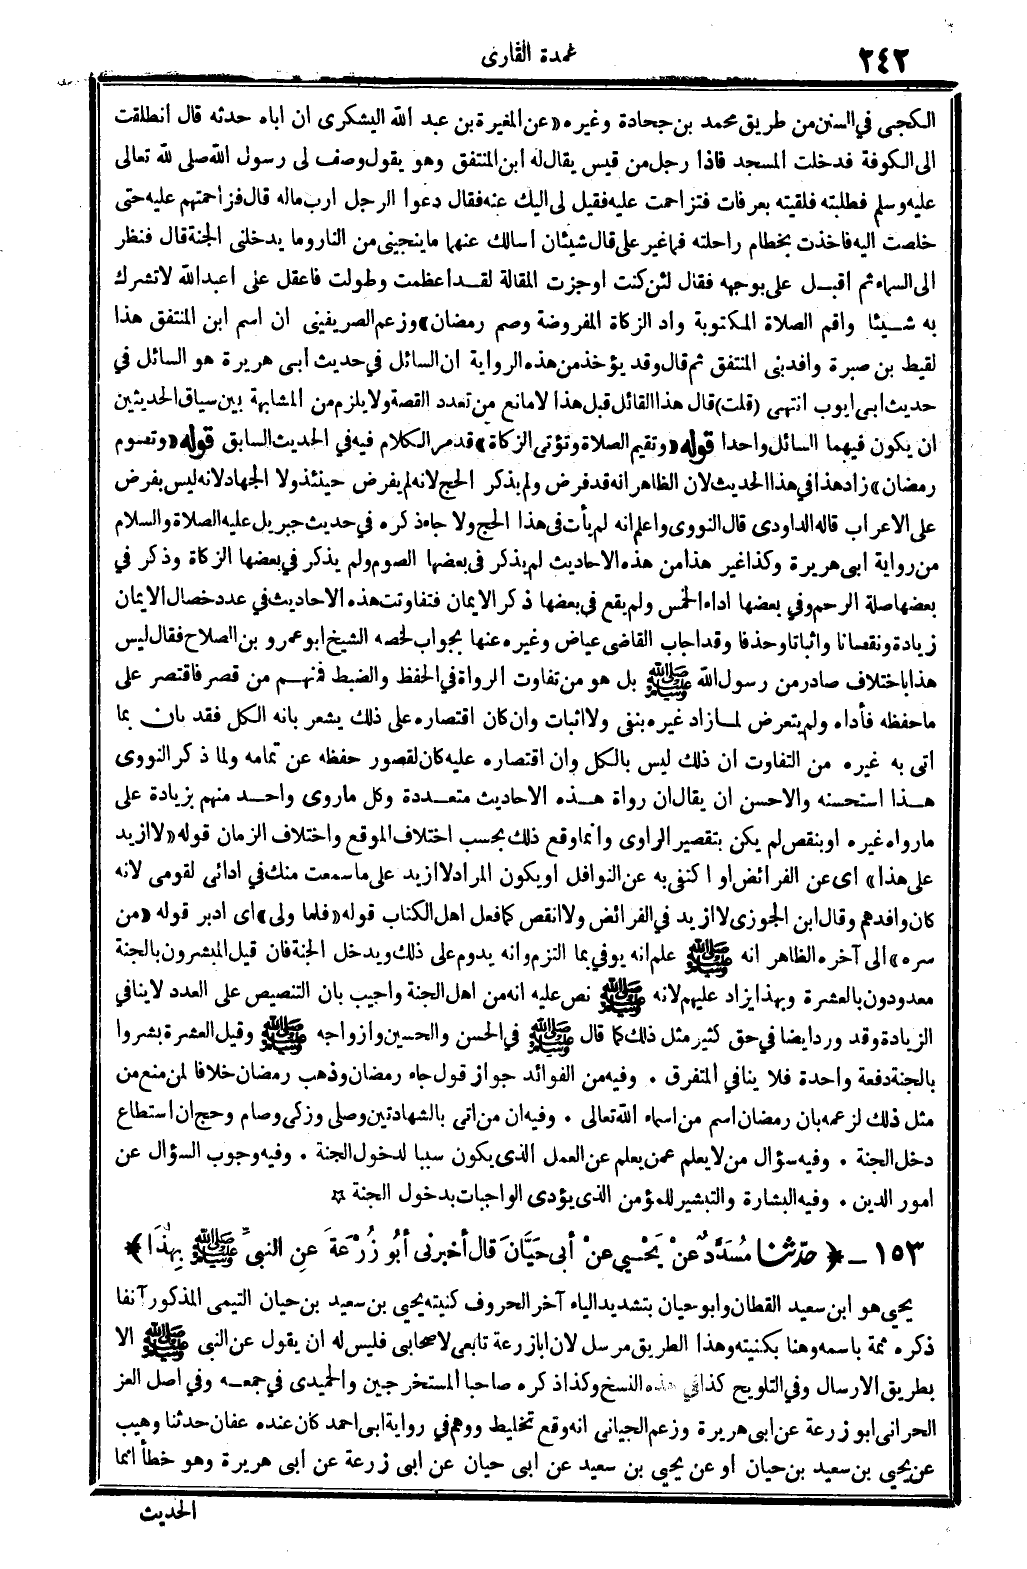 ٢٤٢
عمدة القارى
الكجى في السنن من طريق محمد بن جحادة وغيره «عن المغيرة بن عبد الله اليشكرى ان اباه حدثه قال انطلقت
الى الكوفة فدخلت المسجد فاذا رجل من قيس يقال له ابن المنتفق وهو يقول وصف لى رسول الله صلى لله تعالى
عليه وسلم فطلبته فلقيته بعرفات فتزاحمت عليه فقيل لى اليك عنه فقال دعوا الرجل ارب ماله قال فزاحمتهم عليه حتى
خلصت اليه فاخذت بخطام راحلته فما غير على قال شيئان اسالك عنهما ماينجينى من النار وما يدخلنى الجنة قال فنظر
الى السماء ثم اقبل على بوجهه فقال لئن كنت اوجزت المقالة لقد اعظمت وطولت فاعقل على اعبد الله لاتشرك
به شيئا واقم الصلاة المكتوبة واد الزكاة المفروضة وصم رمضان» وزعم الصريفينى ان اسم ابن المنتفق هذا
لقيط بن صبرة وافد بنى المنتفق ثم قال وقد يؤخذ من هذه الرواية ان السائل في حديث ابى هريرة هو السائل في
حديث ابى ايوب انتهى (قلت) قال هذا القائل قبل هذا لامانع من تعدد القصة ولايلزم من المشابهة بين سياق الحديثين
ان يكون فيهما السائل واحدا قوله «وتقيم الصلاة وتؤتى الزكاة» قد مر الكلام فيه في الحديث السابق قوله «وتصوم
رمضان» زاد هذا في هذا الحديث لان الظاهر انه قد فرض ولم يذكر الحج لانه لم يفرض حينئذ ولا الجهاد لانه ليس بفرض
على الاعراب قاله الداودى قال النووى واعلم انه لم يأت فى هذا الحج ولا جاء ذكره في حديث جبريل عليه الصلاة والسلام
من رواية ابى هريرة وكذا غير هذا من هذه الاحاديث لم يذكر فى بعضها الصوم ولم يذكر في بعضها الزكاة وذكر في
بعضها صلة الرحم وفي بعضها اداء الخمس ولم يقع في بعضها ذكر الايمان فتفاوتت هذه الاحاديث في عدد خصال الايمان
زيادة ونقصانا واثباتا وحذفا وقد اجاب القاضى عياض وغيره عنها بجواب لخصه الشيخ ابو عمرو بن الصلاح فقال ليس
هذا باختلاف صادر من رسول الله ﷺ بل هو من تفاوت الرواة في الحفظ والضبط فمنهم من قصر فاقتصر على
ماحفظه فأداه ولم يتعرض لما زاد غيره بنفى ولا اثبات وان كان اقتصاره على ذلك يشعر بانه الكل فقد بان بما
اتى به غيره من التفاوت ان ذلك ليس بالكل وان اقتصاره عليه كان لقصور حفظه عن تمامه ولما ذكر النووى
هذا استحسنه والاحسن ان يقال ان رواة هذه الاحاديث متعددة وكل ماروى واحد منهم بزيادة على
مارواه غيره او بنقص لم يكن بتقصير الراوى وانما وقع ذلك بحسب اختلاف الموقع واختلاف الزمان قوله «لا ازيد
على هذا» اى عن الفرائض او اكتفى به عن النوافل او يكون المراد لا ازيد على ماسمعت منك في ادائى لقومى لانه
كان وافدهم وقال ابن الجوزى لا ازيد في الفرائض ولا انقص كما فعل اهل الكتاب قوله «فلما ولى» اى ادبر قوله «من
سره» الى آخره الظاهر انه ﷺ علم انه يوفي بما التزم وانه يدوم على ذلك ويدخل الجنة فان قيل المبشرون بالجنة
معدودون بالعشرة وبهذا يزاد عليهم لانه ﷺ نص عليه انه من اهل الجنة واجيب بان التنصيص على العدد لاينافي
الزيادة وقد ورد ايضا في حق كثير مثل ذلك كما قال ﷺ في الحسن والحسين وازواجه ﷺ وقيل العشرة بشروا
بالجنة دفعة واحدة فلا ينافي المتفرق . وفيه من الفوائد جواز قول جاء رمضان وذهب رمضان خلافا لمن منع من
مثل ذلك لزعمه بان رمضان اسم من اسماء الله تعالى . وفيه ان من اتى بالشهادتين وصلى وزكى وصام وحج ان استطاع
دخل الجنة . وفيه سؤال من لايعلم عمن يعلم عن العمل الذى يكون سببا لدخول الجنة . وفيه وجوب السؤال عن
امور الدين . وفيه البشارة والتبشير للمؤمن الذى يؤدى الواجبات بدخول الجنة ☆
١٥٣ ــ ﴿ حدثنا مُسَدَّدٌ عنْ يَحْيىٰ عنْ أبى حَيَّانَ قال أخبرنى أَبُو زُرْعَةَ عنِ النبىِّ ﷺ بِهٰذَا ﴾
يحيى هو ابن سعيد القطان وابو حيان بتشديد الياء آخر الحروف كنيته يحيى بن سعيد بن حيان التيمى المذكور آنفا
ذكره ثمة باسمه وهنا بكنيته وهذا الطريق مرسل لان ابا زرعة تابعى لاصحابى فليس له ان يقول عن النبى ﷺ الا
بطريق الارسال وفي التلويح كذا في هذه النسخ وكذا ذكره صاحبا المستخرجين والحميدى في جمعه وفي اصل العز
الحرانى ابو زرعة عن ابى هريرة وزعم الجيانى انه وقع تخليط ووهم في رواية ابى احمد كان عنده عفان حدثنا وهيب
عن يحيى بن سعيد بن حيان او عن يحيى بن سعيد عن ابى حيان عن ابى زرعة عن ابى هريرة وهو خطأ انما
الحديث